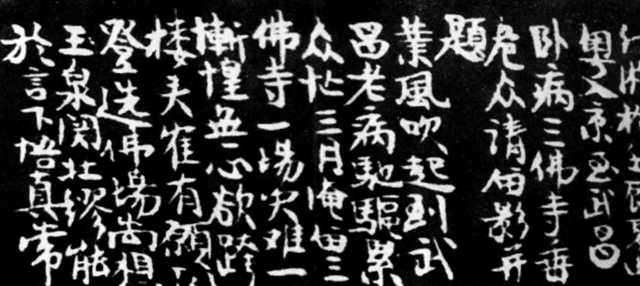 粤入京至武昌
卧病三佛寺垂
危众请留影并
題
業風吹起到武
昌老病馳驅累
众忙三月淹留三
佛寺一場灾难一
慚惶無心欲跨
楼头隺有願同
登选佛場尚想
玉泉関壮繆能
於言下悟真常